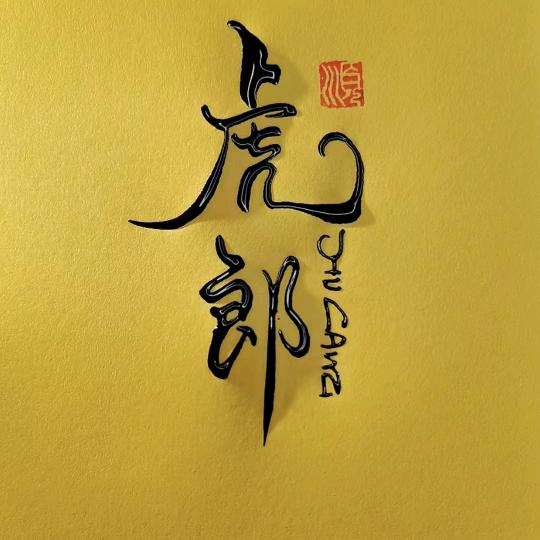 虎郎
HU LANG
順